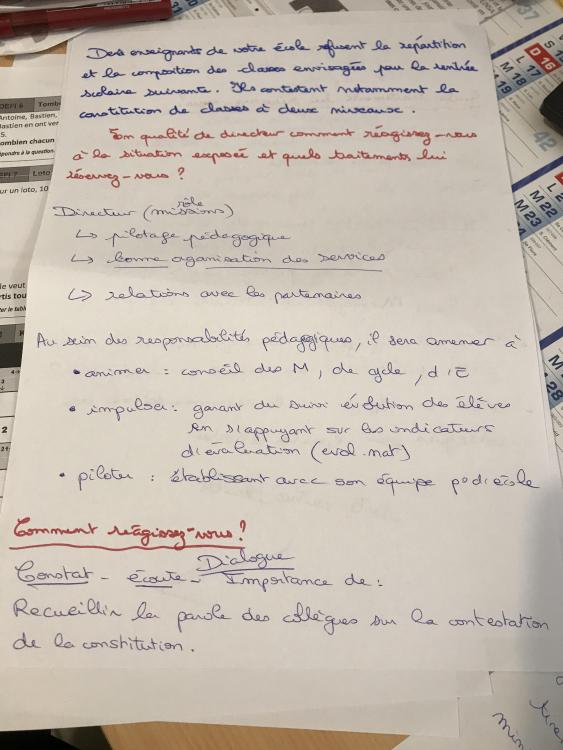 Des enseignants de votre école refusent la répartition
et la composition des classes envisagées pour la rentrée
scolaire suivante. Ils contestent notamment la
constitution de classes à deux niveaux.
En qualité de directeur comment réagissez-vous
à la situation exposée et quels traitements lui
réservez-vous ?
Directeur (missions) rôle
↳ pilotage pédagogique
↳ bonne organisation des services
↳ relations avec les partenaires
Au sein des responsabilités pédagogiques, il sera amener à
• animer : conseil des M, de cycle, d'E
• impulser : garant du suivi évolution des élèves
en s'appuyant sur les indicateurs
d'évaluation (eval. nat)
• piloter : établissant avec son équipe po d'école
Comment réagissez-vous ?
Dialogue
Constat - écoute - Importance de :
Recueillir la parole des collègues sur la contestation
de la constitution.
DEFI 6 Tomb
Antoine, Bastien,
Bastien en ont ver
5.
ombien chacun
épondre à la question.
Loto
ur un loto, 10
le veut
rtis tou
2
42
D 16
L 17
M 18
M 19
M 22
M 23